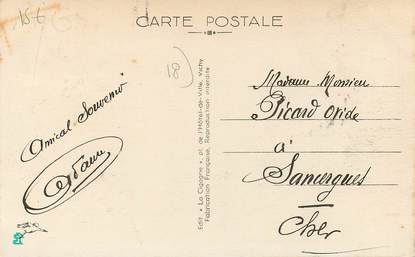 CARTE POSTALE
18)
Amical Souvenir
Edit. "La Cigogne", pl. de l'Hôtel-de-Ville, Vichy
Fabrication Française, Reproduction interdite
Madame Monsieur
Picard Ovide
à
Sancergues
Cher